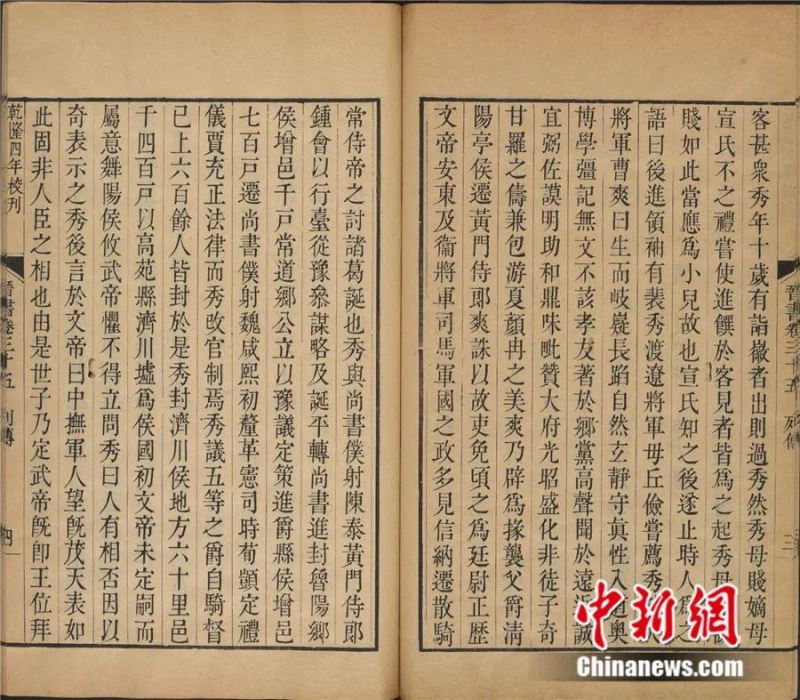 客甚衆秀年十歲有詣徽者出則過秀然秀母賤嫡母
宣氏不之禮嘗使進饌於客見者皆爲之起秀母
賤如此當應爲小兒故也宣氏知之後遂止時人爲之
語曰後進領袖有裴秀渡遼將軍毋丘儉嘗薦秀
將軍曹爽曰生而岐嶷長蹈自然玄靜守眞性入道奧
博學彊記無文不該孝友著於鄉黨高聲聞於遠近誠
宜弼佐謨明助和鼎味毗贊大府光昭盛化非徒子奇
甘羅之儔兼包游夏顏冉之美爽乃辟爲掾襲父爵清
陽亭侯遷黃門侍郞爽誅以故吏免頃之爲廷尉正歷
文帝安東及衞將軍司馬軍國之政多見信納遷散騎
晉書卷三十五 列傳
三
常侍帝之討諸葛誕也秀與尚書僕射陳泰黃門侍郞
鍾會以行臺從豫參謀略及誕平轉尚書進封魯陽鄉
侯增邑千戸常道鄉公立以豫議定策進爵縣侯增邑
七百戸遷尚書僕射魏咸熙初釐革憲司時荀顗定禮
儀賈充正法律而秀改官制焉秀議五等之爵自騎督
已上六百餘人皆封於是秀封濟川侯地方六十里邑
千四百戸以高苑縣濟川墟爲侯國初文帝未定嗣而
屬意舞陽侯攸武帝懼不得立問秀曰人有相否因以
奇表示之秀後言於文帝曰中撫軍人望旣茂天表如
此固非人臣之相也由是世子乃定武帝旣卽王位拜
乾隆四年校刊
晉書卷三十五 列傳
四
中新网
Chinanews.com